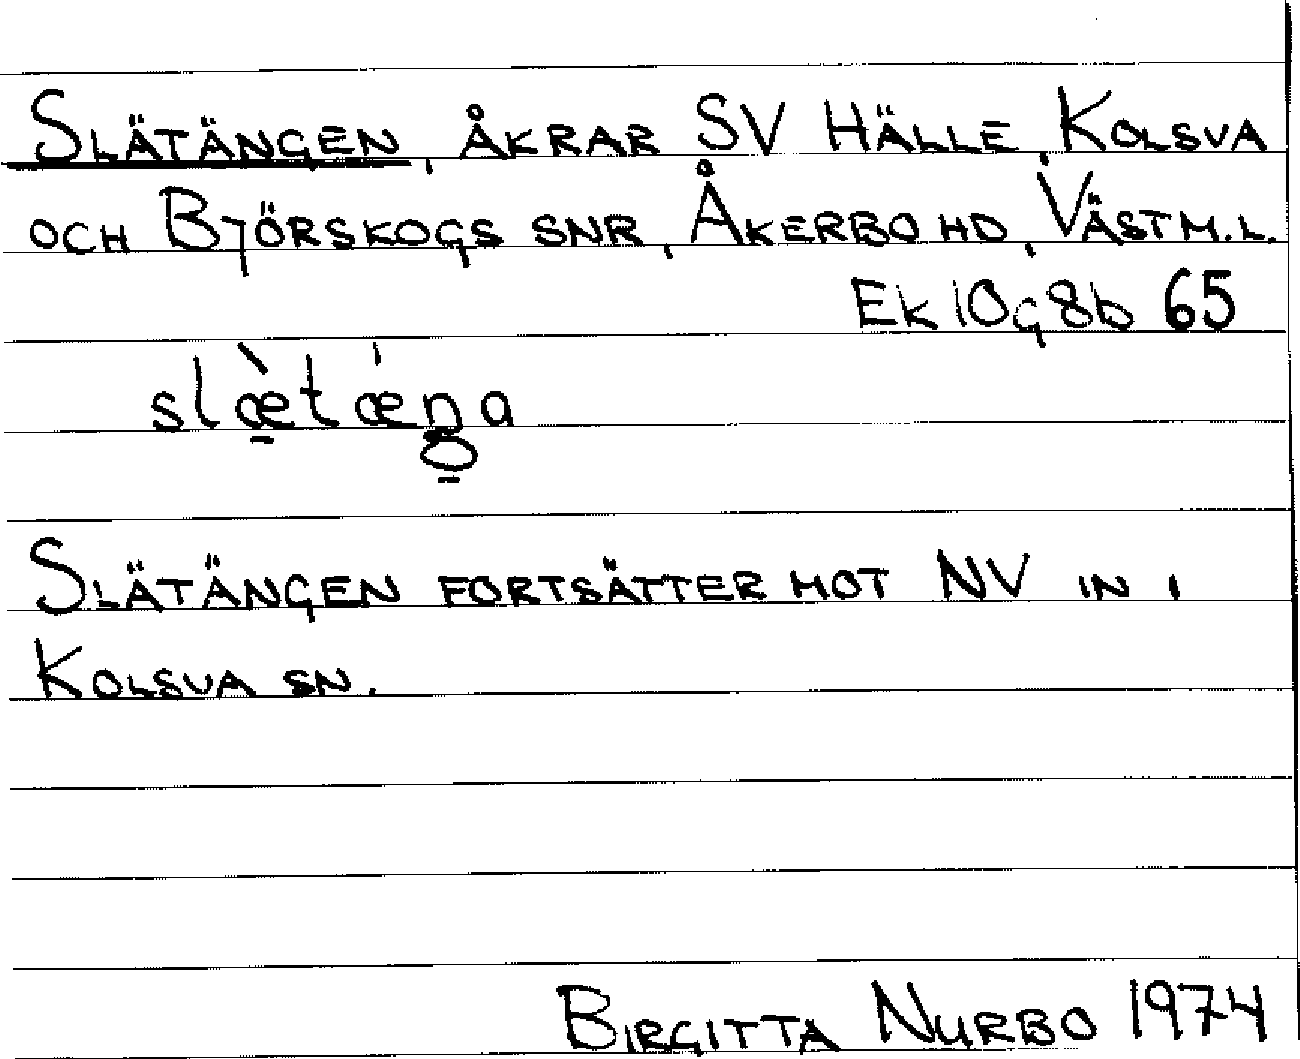 SLÄTÄNGEN, ÅKRAR SV HÄLLE, KOLSVA
OCH BJÖRSKOGS SNR, ÅKERBO HD, VÄSTM.L.
EK 10g8b 65
SLÄTÄNGEN FORTSÄTTER MOT NV IN I
KOLSVA SN.
BIRGITTA NURBO 1974